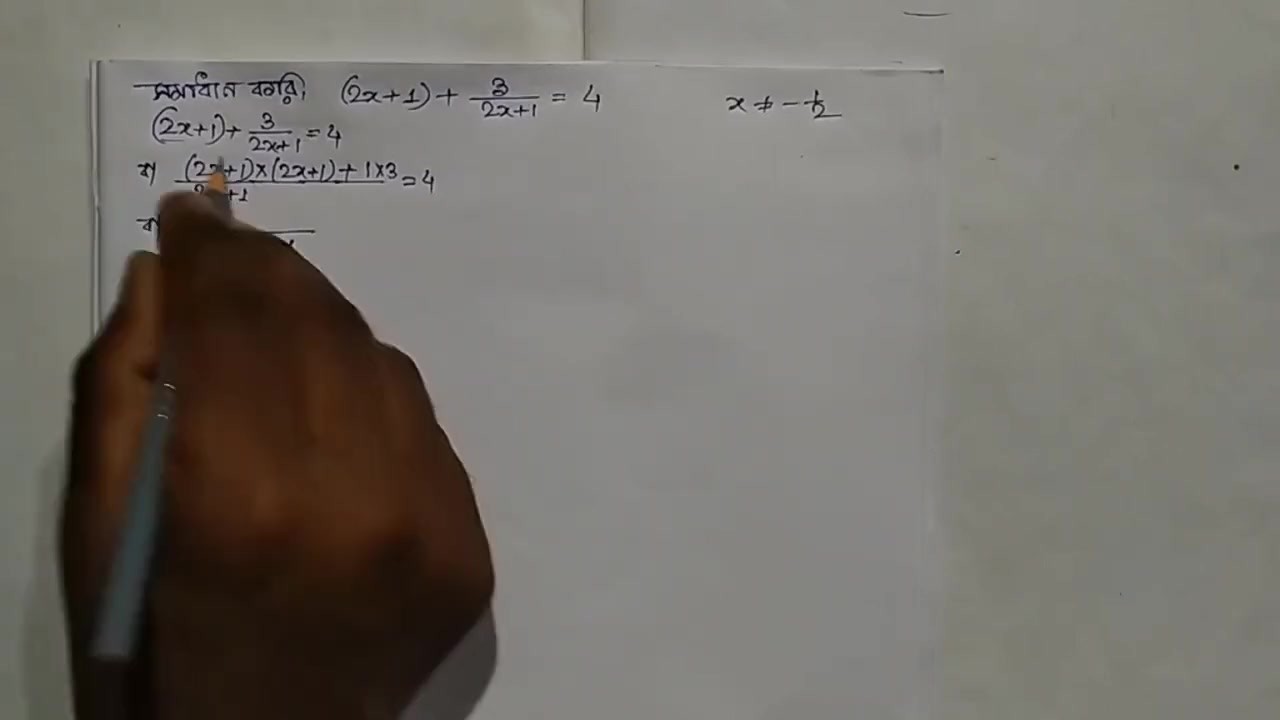 সমাধান করি। (2x+1) + 3/(2x+1) = 4 x ≠ -1/2
(2x+1) + 3/(2x+1) = 4
বা ((2x+1)×(2x+1) + 1×3)/(2x+1) = 4
বা